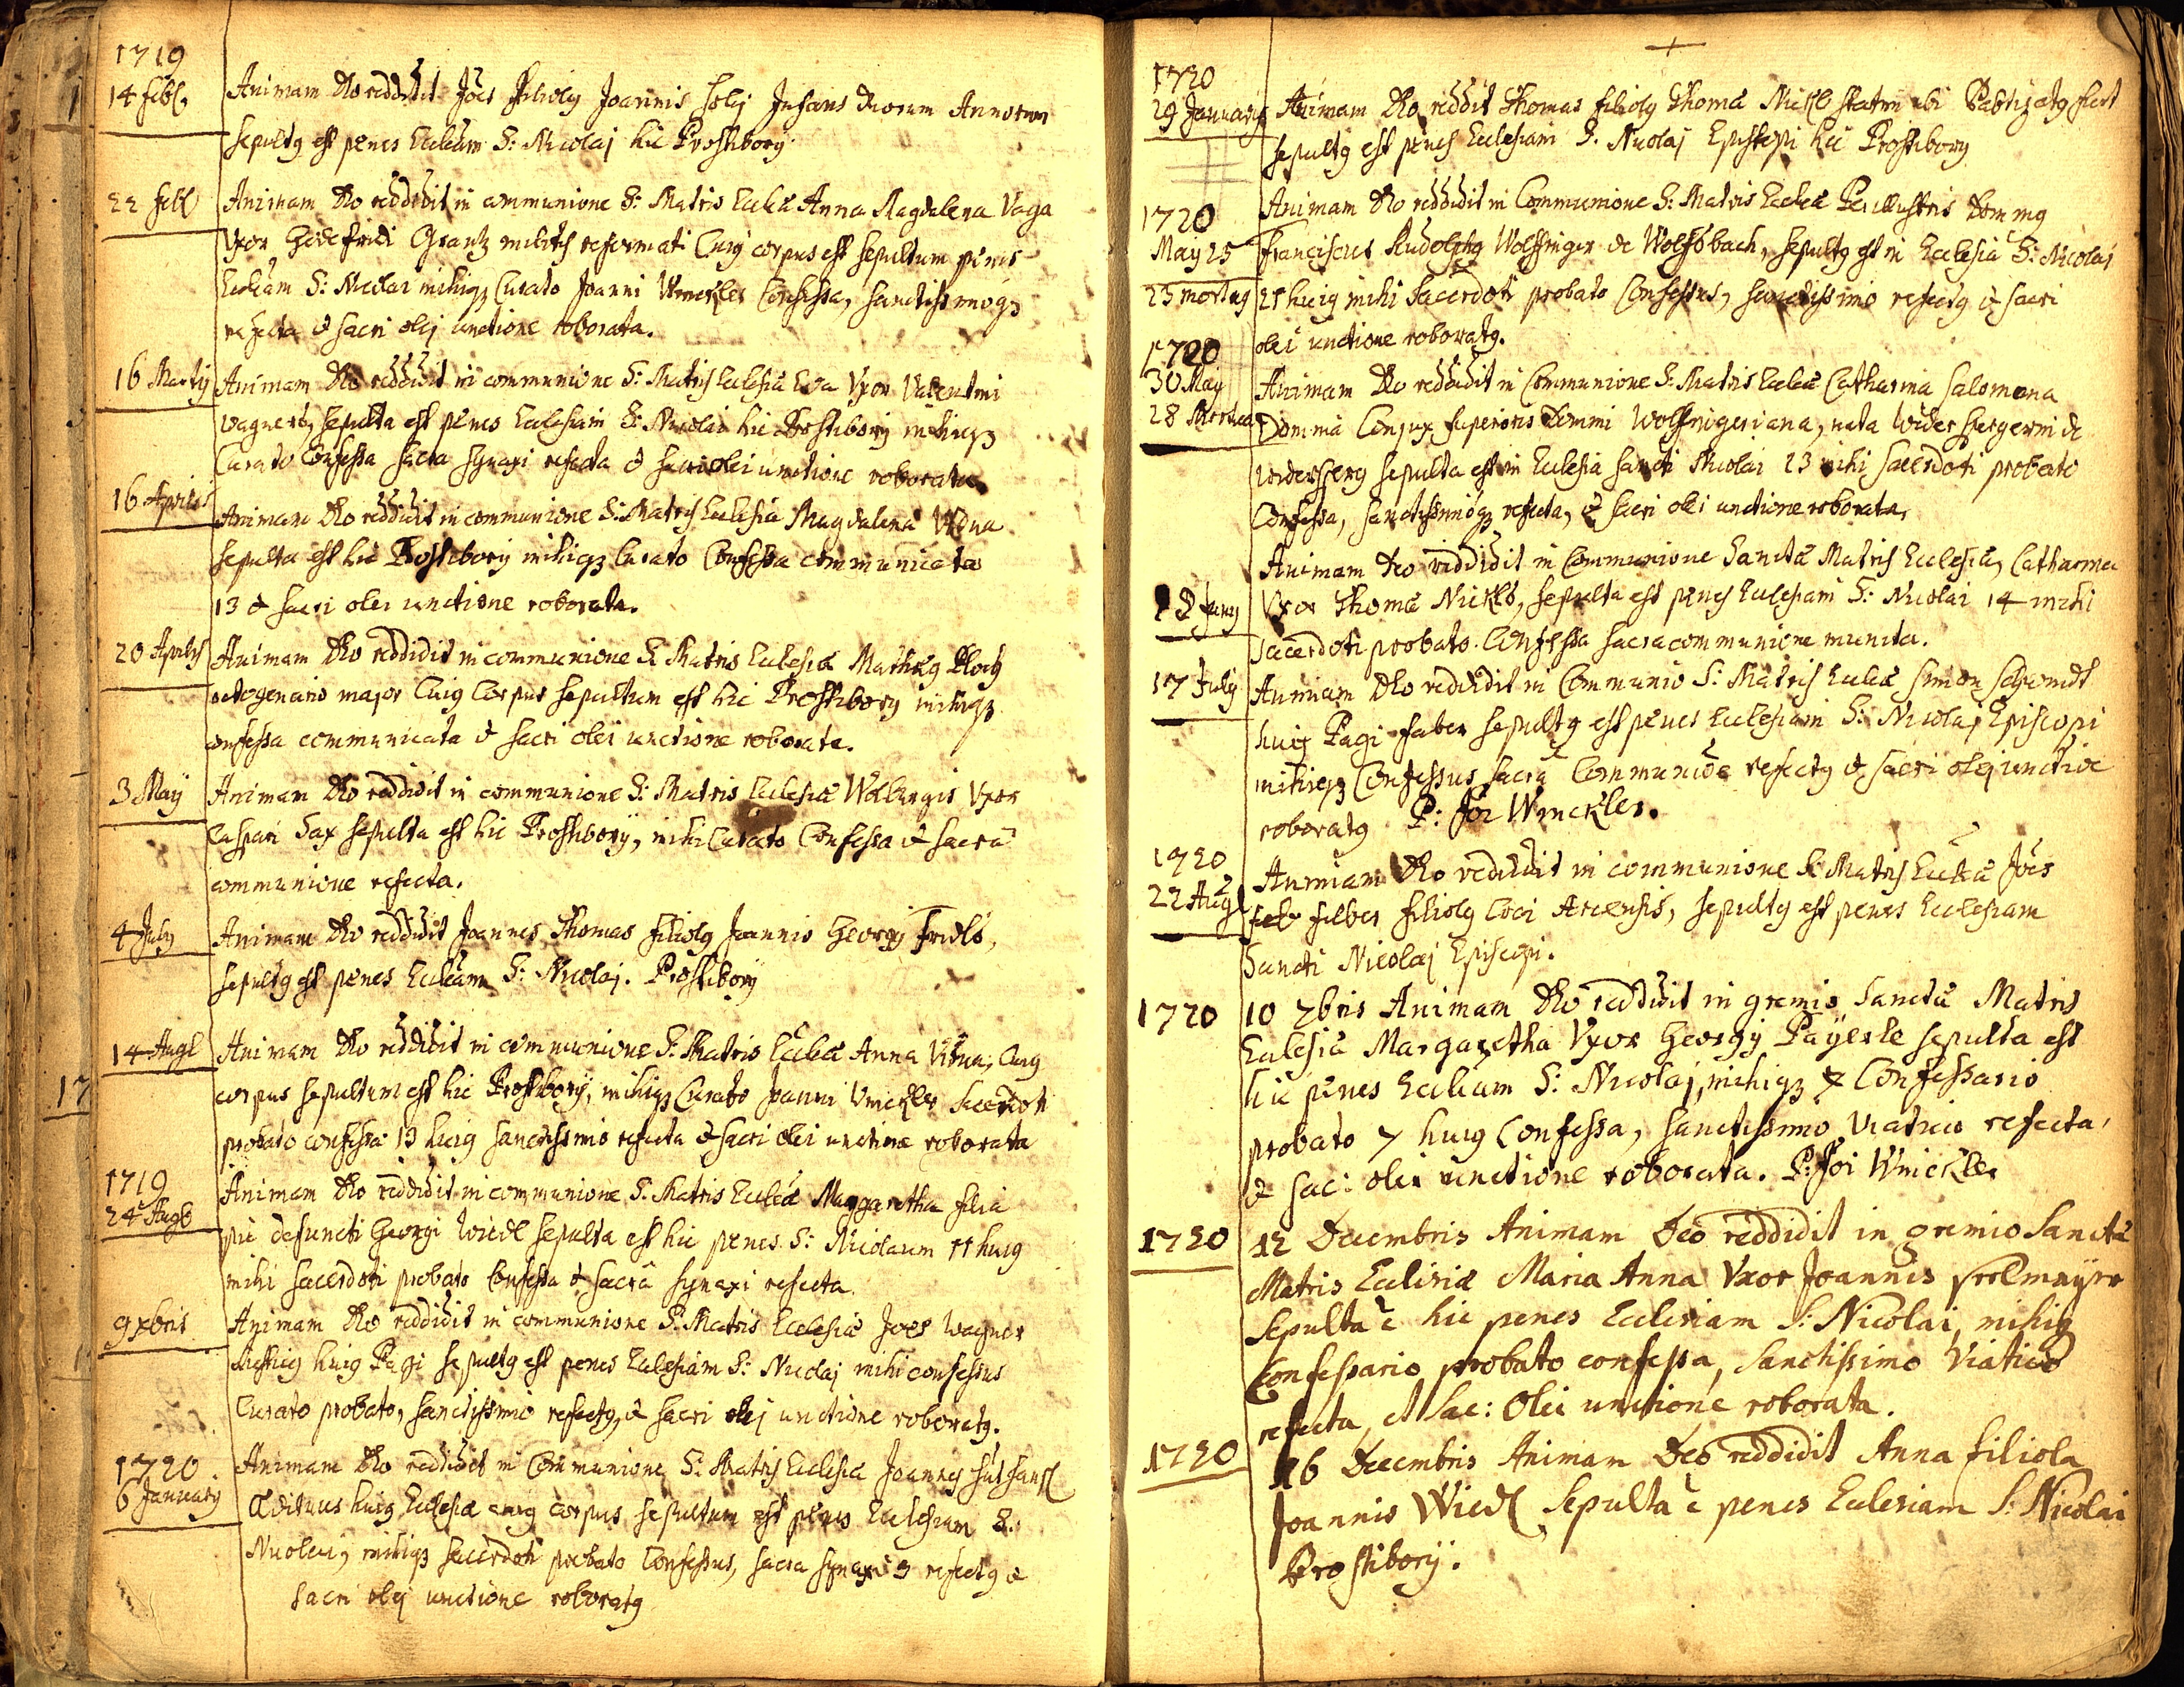 1719
14 Febr. Animam Deo reddidit Joes Filiolg Joannis Infans duorum Annorum
sepultg est penes Eccliam S: Nicolaj hic Prostibory
22 Feb Animam Deo reddidit in communione S: Matris Ecclae Anna Magdalena Vaga
Vxor Godefridi Grantz militis reformati Cujg corpus est sepultum penes
Eccliam S: Nicolai mihiqz Curato Joanni Winckler Confessa, sanctissimoqz
refecta & sacri olej unctione roborata.
16 Martij Animam Deo reddidit in communione S: Matris Ecclesiae Eva Vxor Valentini
Wagner, sepulta est penes Ecclesiam S: Nicolai hic Prostibory mihiqz
Curato Confessa sacra synaxi refecta & sacri olei unctione roborata
16 Aprilis Animam Deo reddidit in communione S: Matris Ecclesiae Magdalena Vidua
sepulta est hic Prostibory mihiqz Curato Confessa communicata
13 & sacri olei unctione roborata.
20 Aprilis Animam Deo reddidit in communione S: Matris Ecclesiae
octogenario major Cuig Corpus sepultum est hic Prostibory mihiqz
confessa communicata & sacri olei unctione roborata.
3 Maij Animam Deo reddidit in communione S: Matris Ecclesiae Walburgis Vxor
Caspari Sax sepulta est hic Prostiborij, mihi Curato Confessa & sacra
communione refecta.
4 July Animam Deo reddidit Joannes Thomas Filiolg Joannis Georgij Fridl,
sepultg est penes Eccliam S: Nicolaj. Prostiborij
14 Aug Animam Deo reddidit in communione S: Matris Ecclae Anna Vidua, Cuig
corpus sepultum est hic Prostiborij, mihiqz Curato Joanni Winckler Sacerdoti
probato confessa 13 huig sanctissimo refecta & sacri olei unctione roborata
17
1719
24 Aug Animam Deo reddidit in communione S: Matris Ecclae Margaretha filia
pie defuncti Georgi Wiedl sepulta est hic penes S: Nicolaum 11 huig
mihi sacerdoti probato Confessa & sacra synaxi refecta
9 xbris Animam Deo reddidit in communione S: Matris Ecclesiae Joes Wagner
huig Pagi sepultg est penes Ecclesiam S: Nicolaj mihi confessus
Curato probato, sanctissimo refectg, & sacri olej unctione roboratg.
1720.
6 January Animam Deo reddidit in Communione S: Matris Ecclesiae Joannes
Aedituus huig Ecclesiae cuig corpus sepultum est penes Ecclesiam S:
Nicolai, mihiqz sacerdoti probato Confessus, sacra synaxi 3 refectg &
sacri olej unctione roboratg
1720
29 January Animam Deo reddit Thomas filiolg Thomae Nickl statim ubi Babtizatg fuit
sepultg est penes Ecclesiam S. Nicolaj Episcopi hic Prostibory
1720 Animam Deo reddidit in Communione S: Matris Ecclae Perillustris Doming
May 25 Franciscus Rudolphg Wolfinger de Wolfsbach, sepultg est in Ecclesia S: Nicolai
23 mortug 21 huig mihi Sacerdoti probato Confessus, sanctissimo refectg & sacri
olei unctione roboratg.
1720
30 May Animam Deo reddidit in Communione S: Matris Ecclae Catharina Salomena
28 Mortua Domina Conjux superioris Domini Wolfingeriana, nata Widerspergerin de
Widersperg sepulta est in Ecclesia Sancti Nicolai 23 mihi sacerdoti probato
Confessa, sanctissimoqz refecta, & sacri olei unctione roborata,
Animam Deo reddidit in Communione Sanctae Matris Ecclesiae, Catharina
Juny Vxor Thomae Nickl, sepulta est penes Ecclesiam S: Nicolai 14 mihi
sacerdoti probato Confessa sacra communione munita.
17 July Animam Deo reddidit in Communio S: Matris Ecclae Simon Schmidt
huig Pagi Faber sepultg est penes Ecclesiam S: Nicolaj Episcopi
mihiqz Confessus sacra Communioe refectg & sacri olej unctioe
roboratg P: Joi Winckler.
1720
22 Aug Animam Deo reddidit in communione S: Matris Ecclae Joes
filiolg loci Arcensis, sepultg est penes Ecclesiam
Sancti Nicolaj Episcopi.
1720 10 xbris Animam Deo reddidit in gremio Sanctae Matris
Eclesiae Margaretha Vxor Georgij Payerle sepulta est
hic penes Eccliam S: Nicolaj, mihiqz Confessario
probato 7 huig Confessa, sanctissimo viatico refecta,
& sac: olei unctione roborata. P: Joi Winckler
1720 12 Decembris Animam Deo reddidit in gremio Sanctae
Matris Ecclesiae Maria Anna Vxor Joannis
Sepulta e hic penes Ecclesiam S: Nicolai, mihiq
Confessario probato confessa, Sanctissimo Viatico
refecta et Sac: Olei unctione roborata.
1720 16 Decembris Animam Deo reddidit Anna filiola
Joannis Wiedl Sepulta e penes Ecclesiam S: Nicolai
Prostiborij.